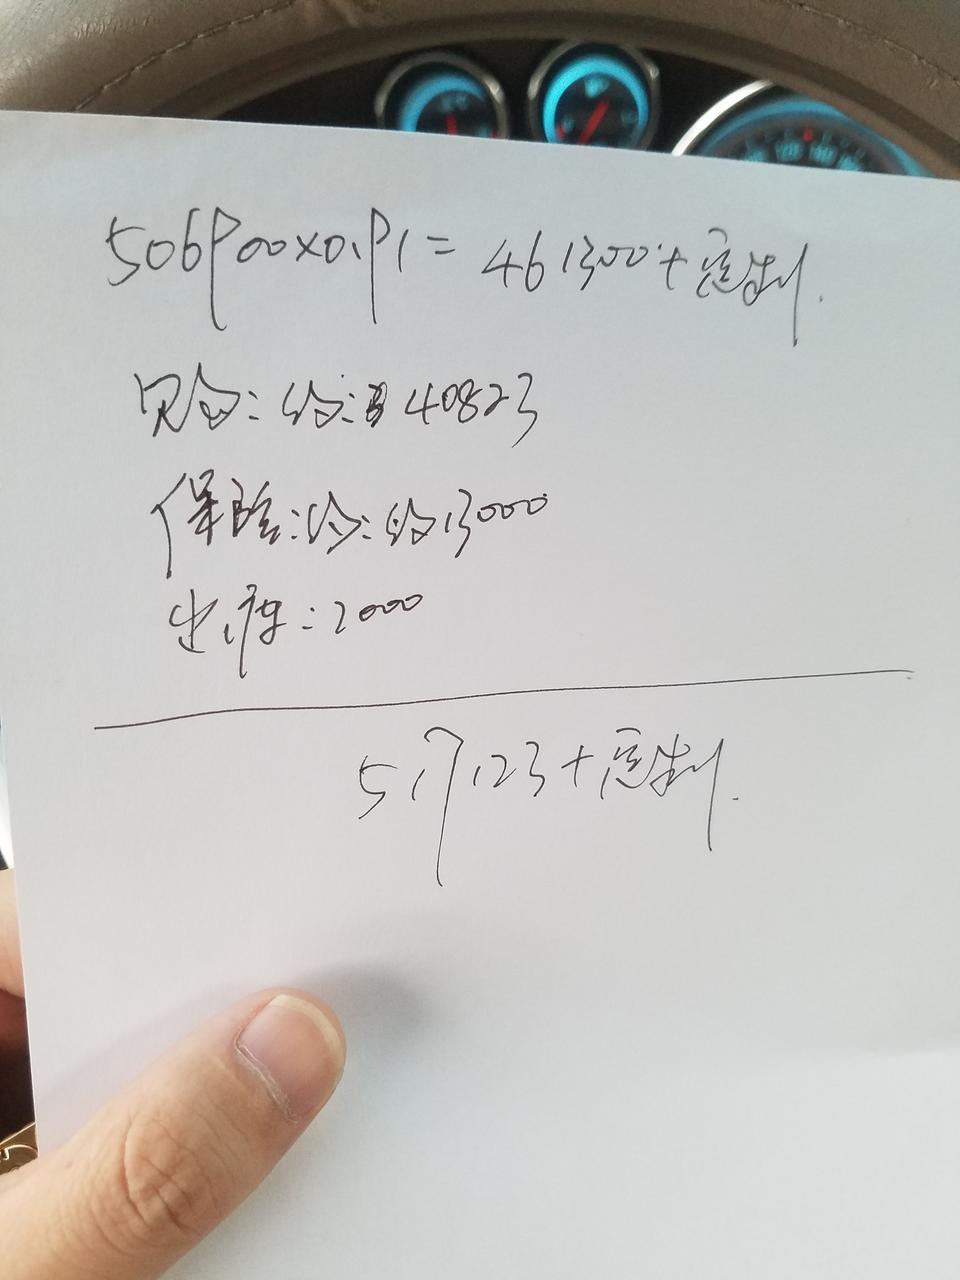 506900×0.91=461300+定制.
购置:约:40823
保险:约:约13000
上牌:2000
517123+定制.